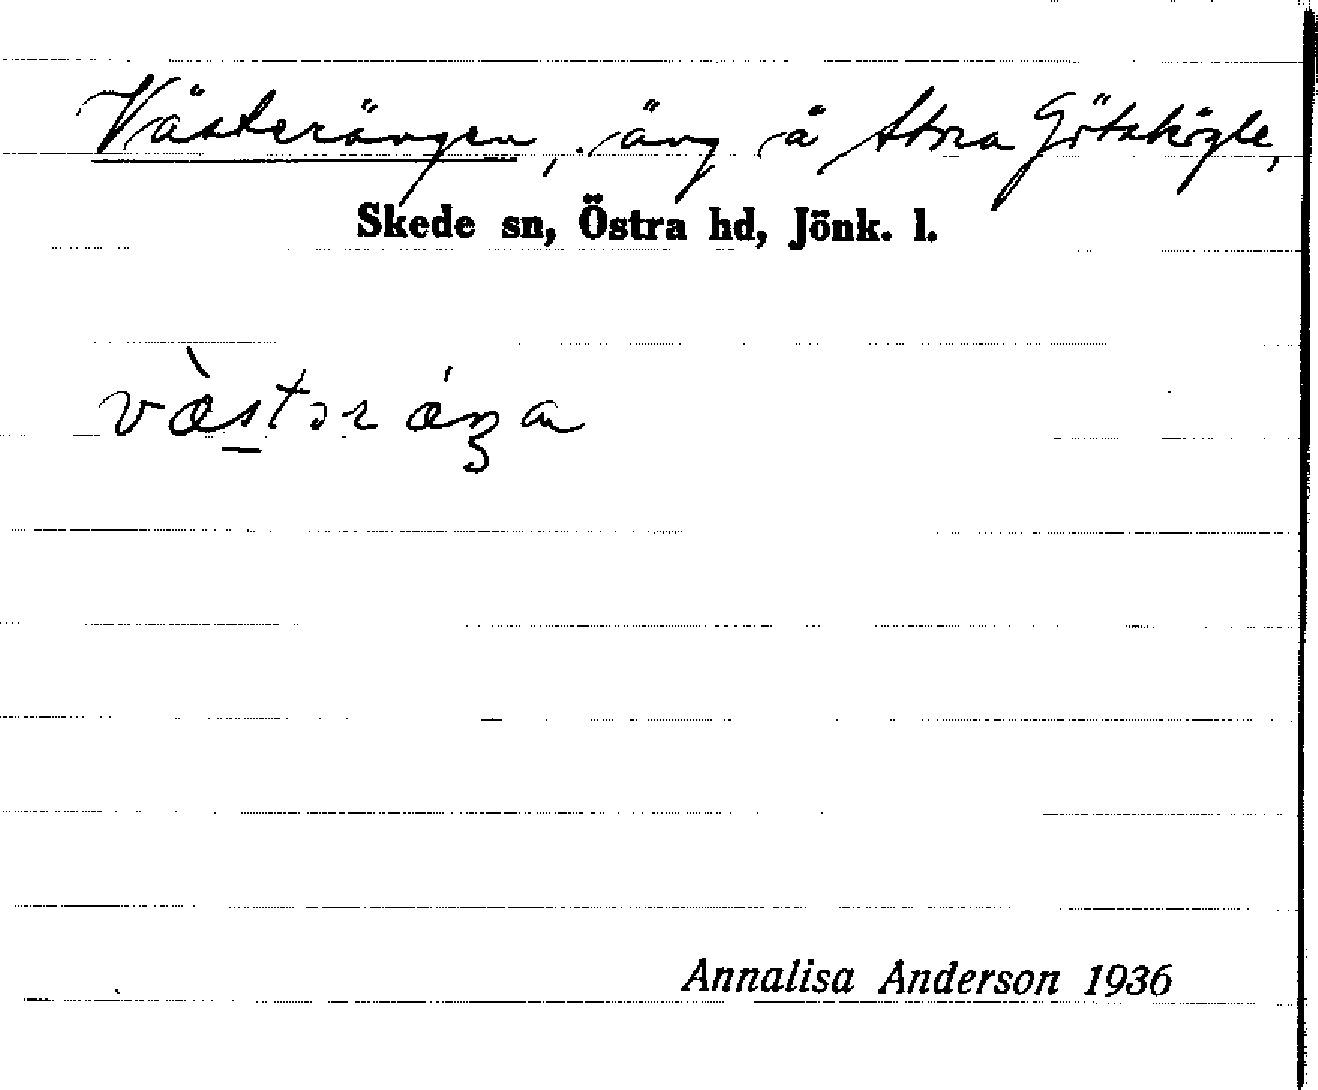 Västerängen, äng å Stora Götshögle,
Skede sn, Östra hd, Jönk. l.
væ̀stərǽŋa
Annalisa Anderson 1936